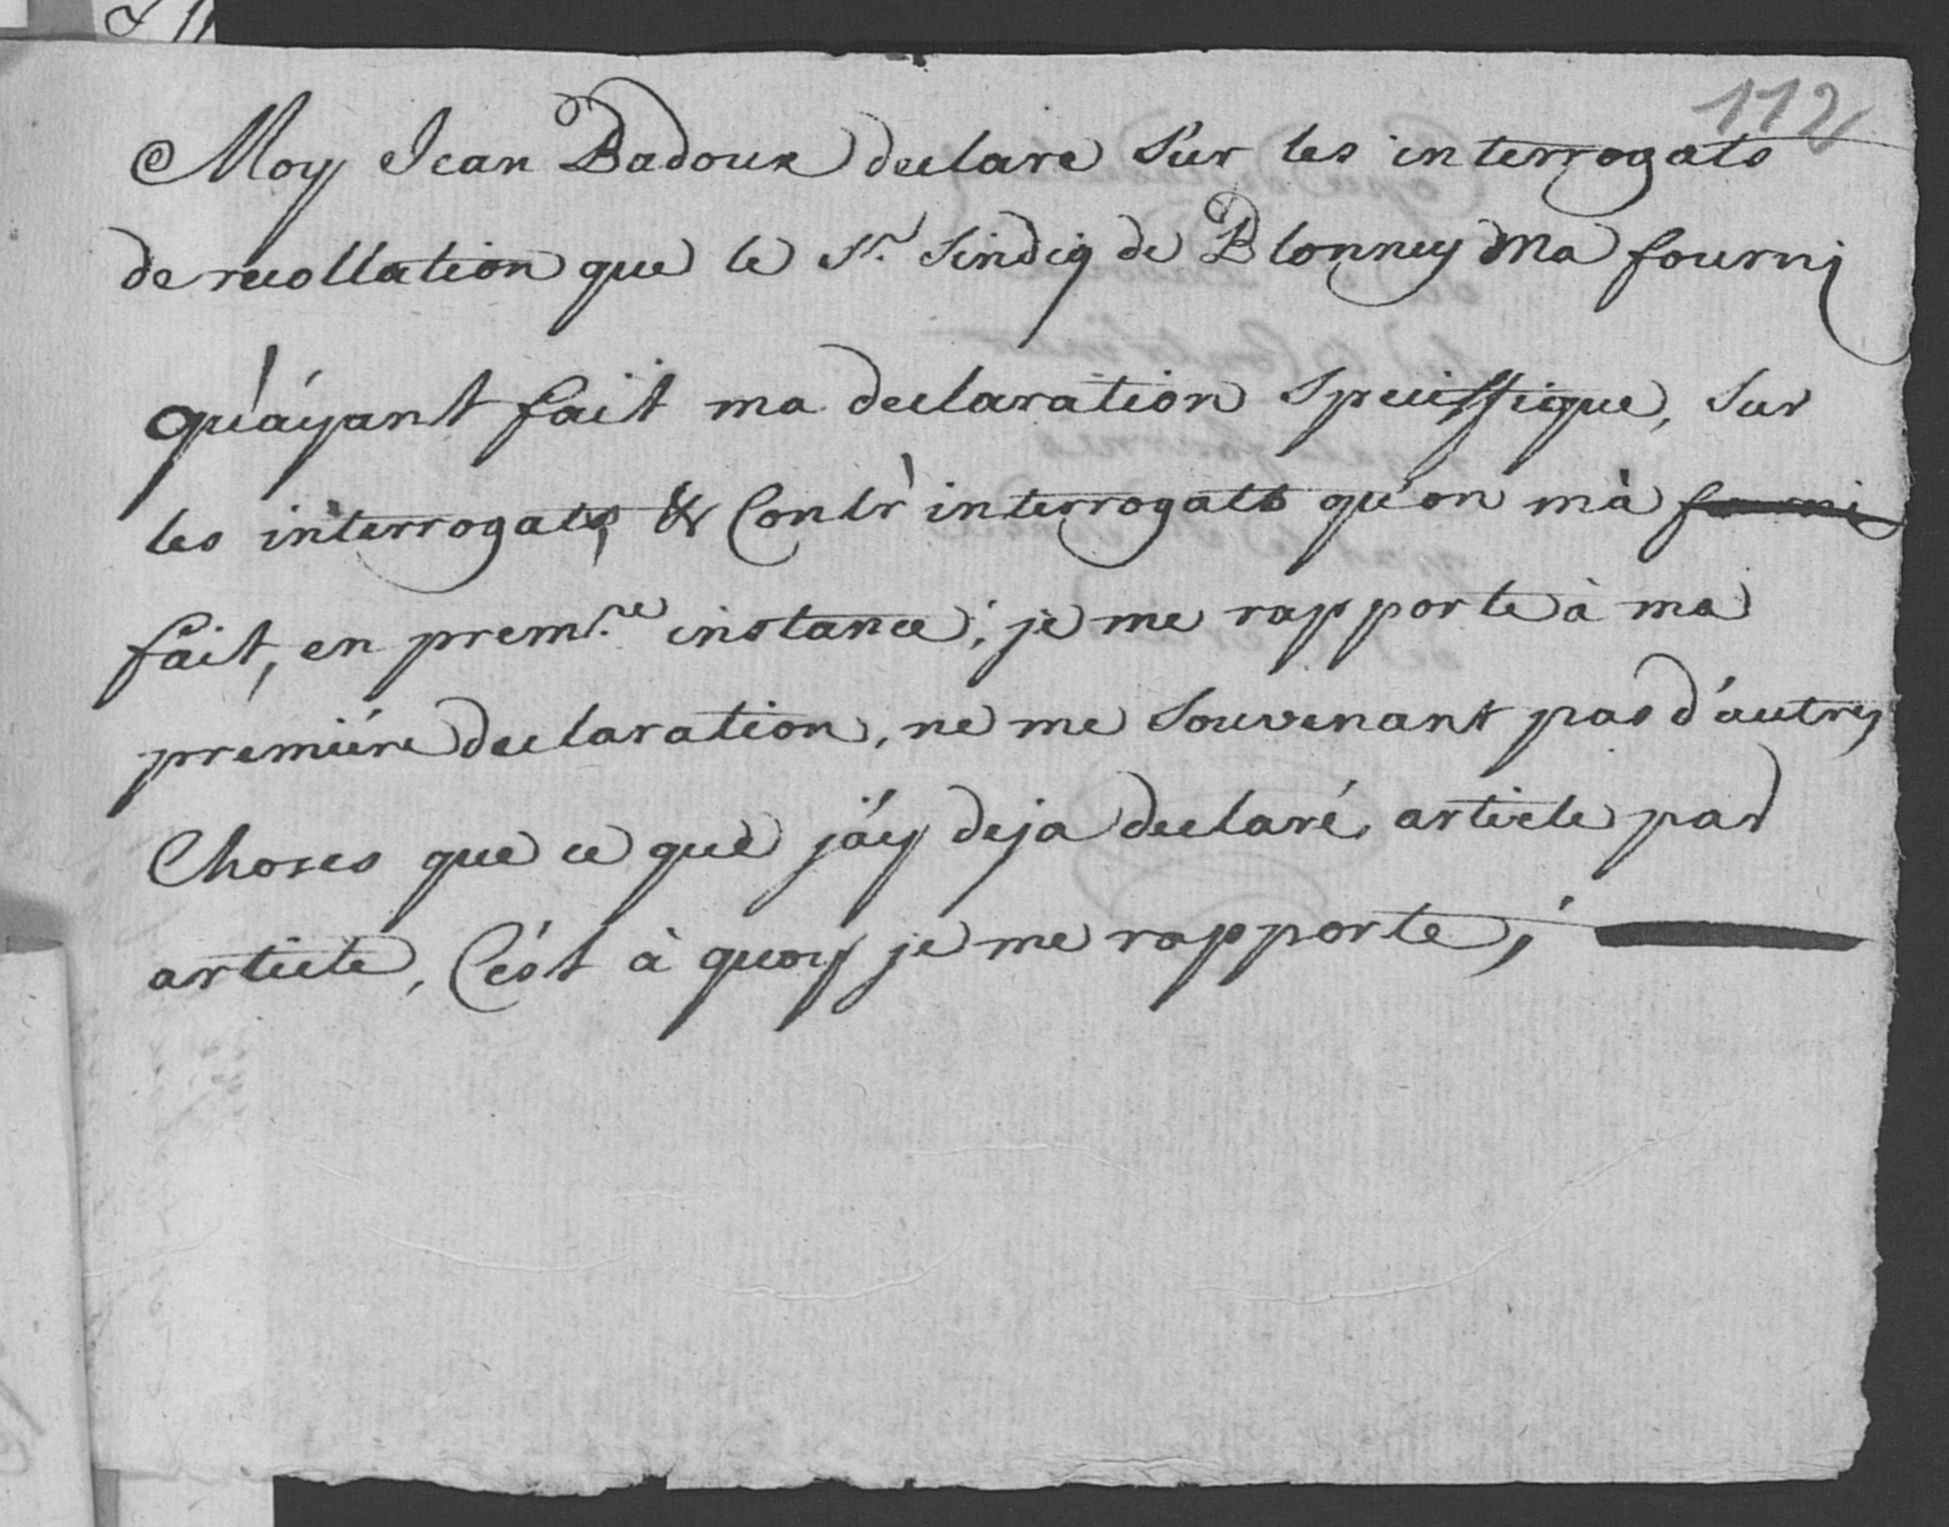 112
Moy Jean Badoux declare Sur les interrogats
de recollation que le Sr. Sindiq de Blonney Ma fourni
qu'áyant fait ma declaration Speciffique, Sur
les interrogats, & Contr' interrogats qu'on mà fourni
fait, en prem.re instance; je me rapporte à ma
premiére declaration, ne me Souvenant pas d'autres
Choses que ce que j'áy deja declaré, article par
article, C'ést à quoy je me rapporte;